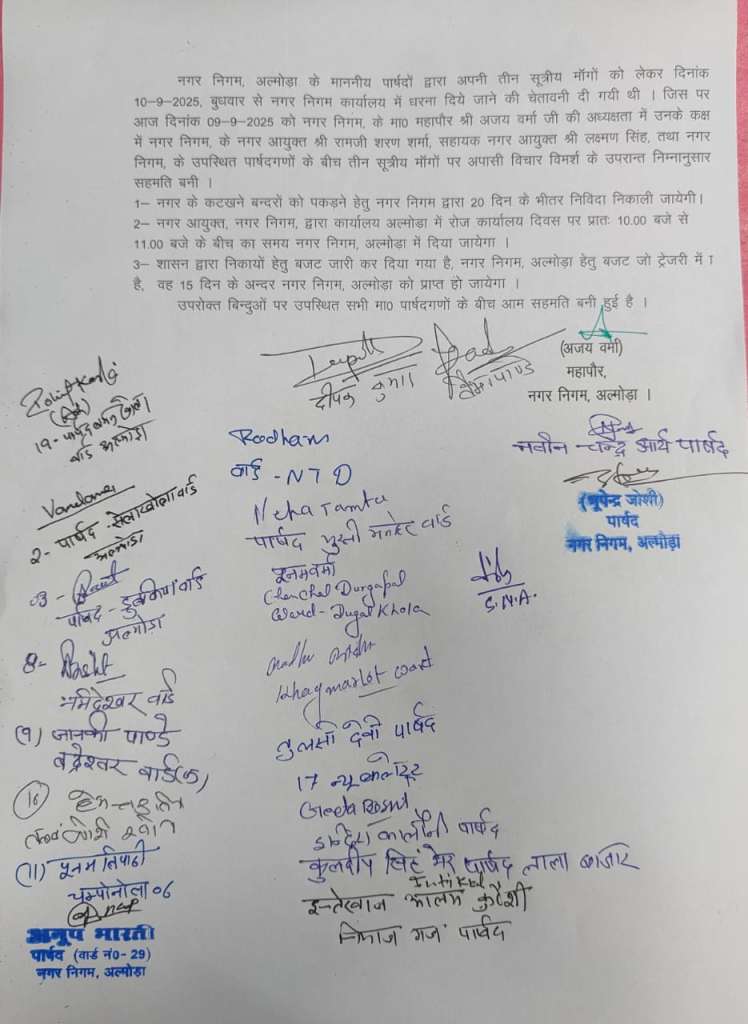 नगर निगम, अल्मोड़ा के माननीय पार्षदों द्वारा अपनी तीन सूत्रीय मॉगों को लेकर दिनांक
10-9-2025, बुधवार से नगर निगम कार्यालय में धरना दिये जाने की चेतावनी दी गयी थी । जिस पर
आज दिनांक 09-9-2025 को नगर निगम, के मा0 महापौर श्री अजय वर्मा जी की अध्यक्षता में उनके कक्ष
में नगर निगम, के नगर आयुक्त श्री रामजी शरण शर्मा, सहायक नगर आयुक्त श्री लक्ष्मण सिंह, तथा नगर
निगम, के उपस्थित पार्षदगणों के बीच तीन सूत्रीय मॉगों पर अपासी विचार विमर्श के उपरान्त निम्नानुसार
सहमति बनी ।
1- नगर के कटखने बन्दरों को पकड़ने हेतु नगर निगम द्वारा 20 दिन के भीतर निविदा निकाली जायेगी।
2- नगर आयुक्त, नगर निगम, द्वारा कार्यालय अल्मोड़ा में रोज कार्यालय दिवस पर प्रातः 10.00 बजे से
11.00 बजे के बीच का समय नगर निगम, अल्मोड़ा में दिया जायेगा ।
3- शासन द्वारा निकायों हेतु बजट जारी कर दिया गया है, नगर निगम, अल्मोड़ा हेतु बजट जो ट्रेजरी में
है, वह 15 दिन के अन्दर नगर निगम, अल्मोड़ा को प्राप्त हो जायेगा ।
उपरोक्त बिन्दुओं पर उपस्थित सभी मा0 पार्षदगणों के बीच आम सहमति बनी हुई है ।
(अजय वर्मा)
महापौर,
नगर निगम, अल्मोड़ा ।
दीपक कुमार
19- पार्षद
वार्ड अल्मोड़ा
Vandana
2- पार्षद सेलाखोला वार्ड
अल्मोड़ा
03-
पार्षद- वार्ड
अल्मोड़ा
8-
नर्मदेश्वर वार्ड
(9) जानकी पाण्डे
बद्रेश्वर वार्ड(क)
10
(11) पूनम त्रिपाठी
चम्पानौला 06
अनूप भारती
पार्षद (वार्ड नं0- 29)
नगर निगम, अल्मोड़ा
Radham
वार्ड - NTD
Neha Tamta
पार्षद वार्ड
पूनम वर्मा
Chanchal Durgapal
Ward- Dugal Khola
ward
तुलसी देवी पार्षद
17 न्यू
Geeta
इन्दिरा कालौनी पार्षद
कुलदीप सिंह मेर पार्षद लाला बाजार
इन्तेखाब आलम कुरैशी
नियाज गंज पार्षद
नवीन चन्द्र आर्य पार्षद
(भूपेन्द्र जोशी)
पार्षद
नगर निगम, अल्मोड़ा
S.N.A.